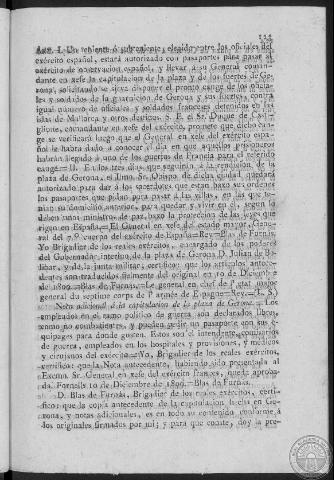 Art. I. Un teniente ó subteniente, elegido entre los oficiales del
exército español, estará autorizado con pasaportes para pasar al
exército de observacion español, y llevar á su General coman-
dante en xefe la capitulacion de la plaza y de los fuertes de Ge-
rona, solicitando se sirva disponer el pronto cange de los oficia-
les y soldados de la guarnicion de Gerona y sus fuertes, contra
igual número de oficiales y soldados franceses detenidos en las
islas de Mallorca y otros destinos. S. E. el Sr. Duque de Casti-
glione, comandante en xefe del exército, promete que dicho can-
ge se verificará luego que el General en xefe del exército espa-
ñol le habrá dado á conocer el dia en que aquellos prisioneros
habrán llegado á uno de los puertos de Francia para el referido
cange. = II. En los tres dias que seguirán á la rendicion de la
plaza de Gerona, el Ilmo. Sr. Obispo de dicha ciudad quedará
autorizado para dar á los sacerdotes que estan baxo sus órdenes
los pasaportes que pidan para pasar á las villas, en las que te-
nian su domicilio anterior, para quedar y vivir en él, segun lo
deben unos ministros de paz, baxo la proteccion de las leyes que
rigen en España. = El General en xefe del estado mayor, Gene-
ral del 7.º cuerpo del exército de España = Rey = Blas de Furnás.
Yo Brigadier de los reales exércitos, encargado de los poderes
del Gobernador interino de la plaza de Gerona D. Julian de Bo-
libar, y de la junta militar, certifico, que los artículos antece-
dentes son traducidos fielmente del original en 10 de Diciembre
de 1809. = Blas de Furnás. = Le general en chef de l'etat major
general du septime corps de l'armée de Espagne = Rey. = (L. S.)
Nota adicional á la capitulacion de la plaza de Gerona. = Los
empleados en el ramo político de guerra, son declarados libres,
como no combatientes, y pueden pedir un pasaporte con sus e-
quipages para donde gusten. Estos son el intendente, comisarios
de guerra, empleados en los hospitales y provisiones, y médicos
y cirujanos del exército. = Yo, Brigadier de los reales exércitos,
certifico: que la Nota antecedente, habiendo sido presentada al
Excmo. Sr. General en xefe del exército frances, queda aproba-
da. Fornells 10 de Diciembre de 1809. = Blas de Furnás.
D. Blas de Furnás, Brigadier de los reales exércitos, certi-
fico: que la copia antecedente de la capitulacion hecha en Ge-
rona, y notas adicionales, es en todo su contenido conforme á
los originales firmados por mí; y para que conste, doy la pre-